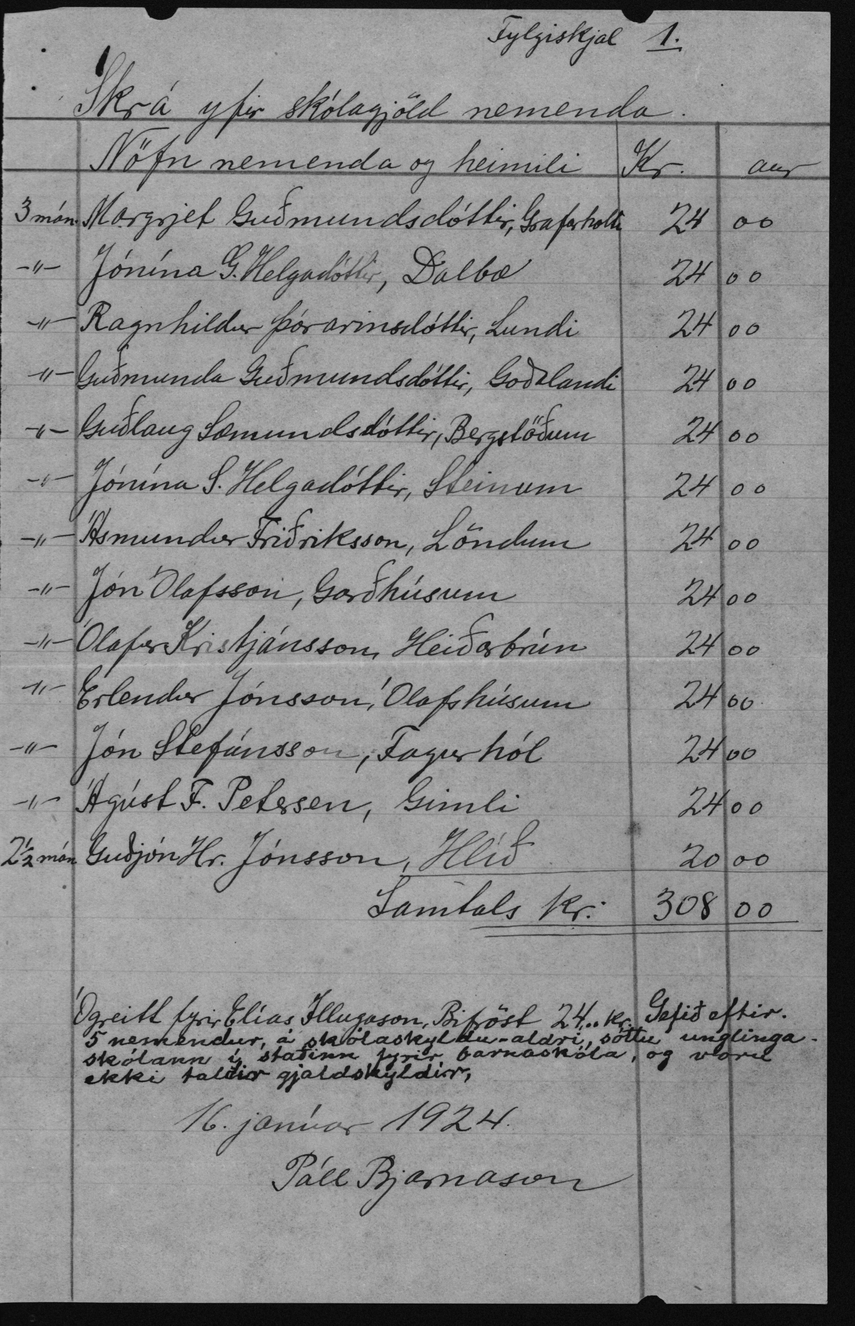 Fylgiskjal 1.
Skrá yfir skólagjöld nemenda.
Nöfn nemenda og heimili Kr. aur
3 mán. Margrjet Guðmundsdóttir, Grafarholti 24 00
-"- Jónína G. Helgadóttir, Dalbæ 24 00
-"- Ragnhildur Þórarinsdóttir, Lundi 24 00
-"- Guðmunda Guðmundsdóttir, Goðalandi 24 00
-"- Guðlaug Sæmundsdóttir, Bergstöðum 24 00
-"- Jónína S. Helgadóttir, Steinum 24 00
-"- Ásmundur Friðriksson, Löndum 24 00
-"- Jón Ólafsson, Garðhúsum 24 00
-"- Ólafur Kristjánsson, Heiðarbrún 24 00
-"- Erlendur Jónsson, Ólafshúsum 24 00
-"- Jón Stefánsson, Fagurhól 24 00
-"- Ágúst F. Petersen, Gimli 24 00
2½ mán Guðjón Hr. Jónsson, Hlíð 20 00
Samtals kr: 308 00
Ógreitt fyrir Elías Illugason, Bifröst 24.. kr. Gefið eftir.
5 nemendur, á skólaskyldu-aldri, sóttu unglinga-
skólann í staðinn fyrir barnaskóla, og voru
ekki taldir gjaldskyldir,
16. janúar 1924.
Páll Bjarnason